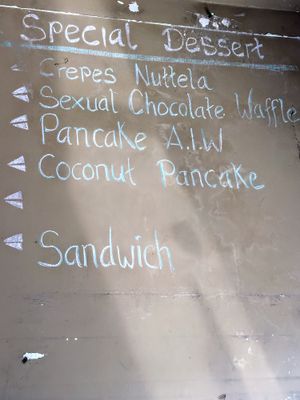 Special Dessert
Crepes Nuttela
Sexual Chocolate Waffle
Pancake A.I.W
Coconut Pancake
Sandwich